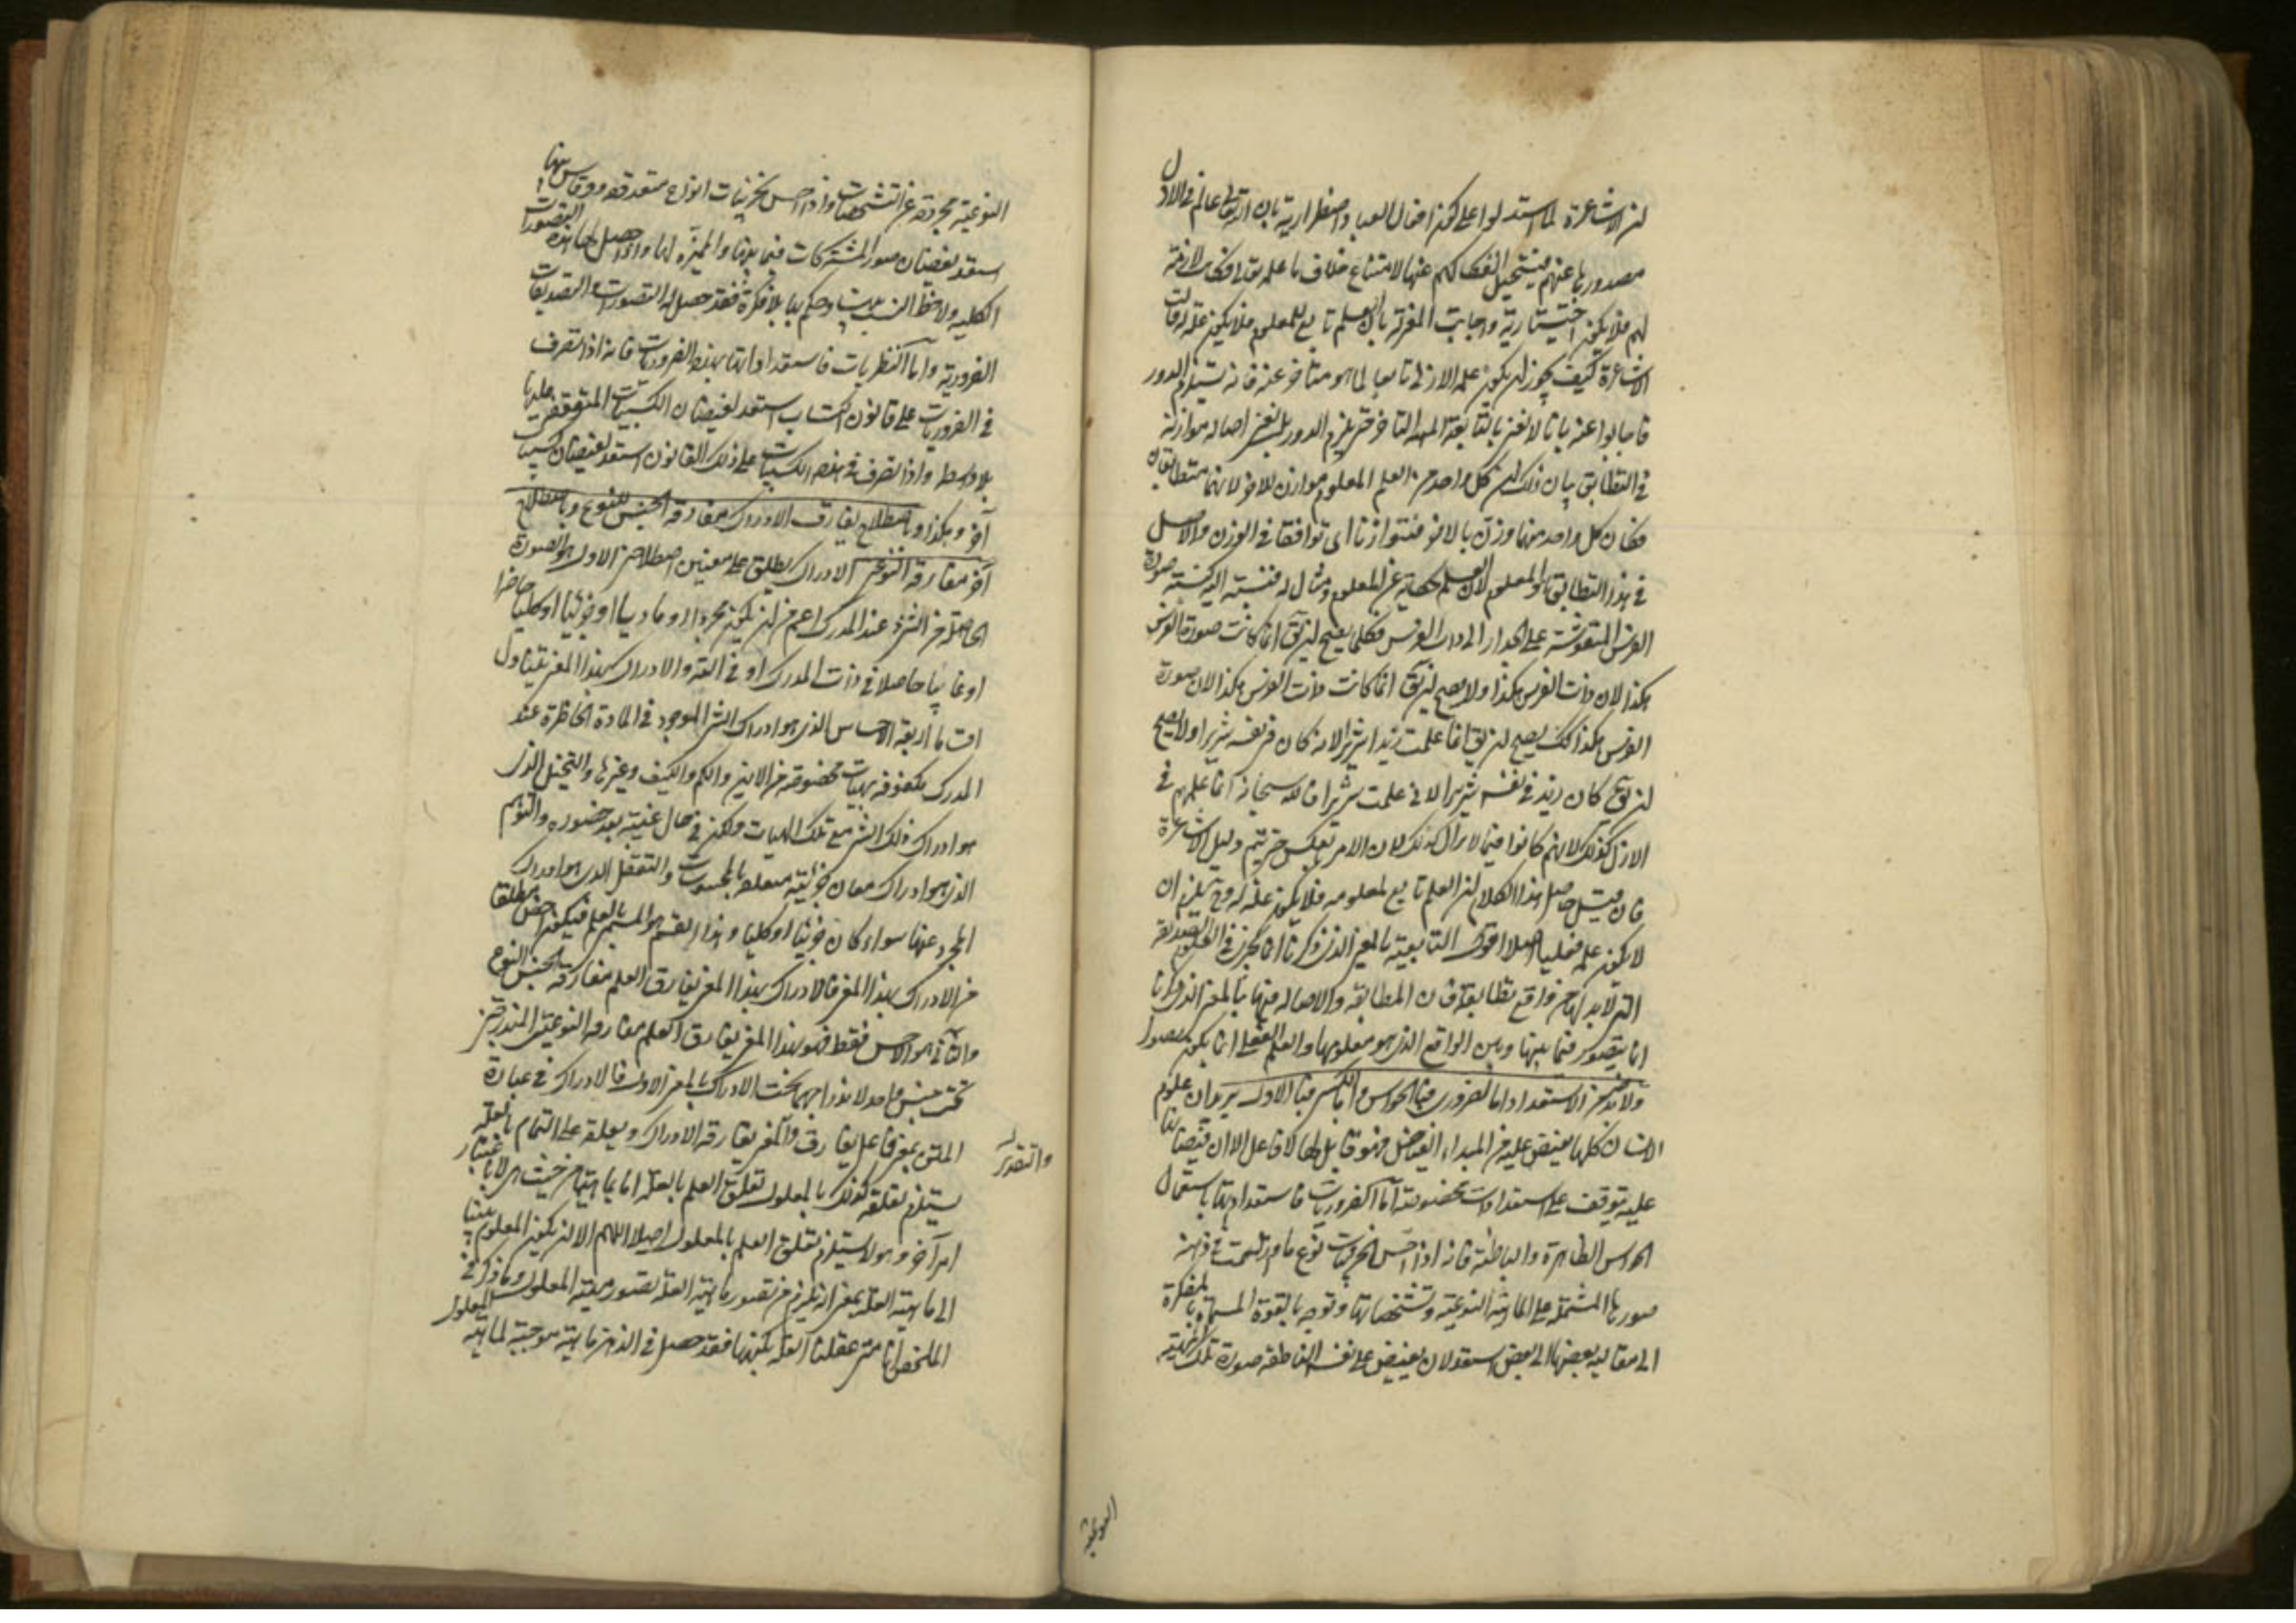 لان الاشاعرة لما استدلوا على كون افعال العباد اضطرارية بان الله تعالى عالم فى الازل
بصدورها عنهم فيستحيل انفكاكهم عنها لامتناع خلاف ما علمه تعالى فكانت لازمة
لهم فلا يكون اختيارية واجابت المعتزلة بان العلم تابع للمعلوم فلا يكون علة له قالت
الاشاعرة كيف يجوز ان يكون علمه الازلى تابعا لما هو متأخر عنه فانه يستلزم الدور
فاجابوا عنه بانا لا نعنى بالتابعية التأخر حتى يلزم الدور بل نعنى اصالة موازنه
فى التطابق بيان ذلك ان كل واحد من العلم والمعلوم موازن للآخر لانهما متطابقان
فكان كل واحد منهما وزن بالآخر فتوازنا اى توافقا فى الوزن والاصل
فى هذا التطابق هو المعلوم لان العلم حكاية عن المعلوم ومثال له فنسبته اليه كنسبة صورة
الفرس المنقوشة على الجدار الى ذات الفرس فكما يصح ان يقال انما كانت صورة الفرس
هكذا لان ذات الفرس هكذا ولا يصح ان يقال انما كانت ذات الفرس هكذا لان صورة
الفرس هكذا كذلك يصح ان يقال انما علمت زيدا شريرا لانه كان فى نفسه شريرا ولا يصح
ان يقال كان زيد فى نفسه شريرا لانى علمت شريرا فالله سبحانه انما علمهم فى
الازل كذلك لانهم كانوا فيما لا يزال كذلك لا ان الامر بالعكس حتى يتم دليل الاشاعرة
فان قيل حاصل هذا الكلام ان العلم تابع لمعلومه فلا يكون علة له وح يلزم ان
لا يكون علمه فعليا اصلا اقول التابعية بالمعنى الذى ذكرنا انما يجرى فى العلوم التصديقية
التى لا بد لها من واقع تطابقه فان المطابقة والاصالة فيها بالمعنى الذى ذكرنا
انما يتصور فيما بينها وبين الواقع الذى هو معلومها والعلم الفعلى انما يكون تصورا
ولا بد من الاستعداد اما الضرورى فبالحواس واما الكسبى فبالاول يريد ان علوم
الانسان كلها يفيض عليه من المبداء الفياض فهو قابل لها لا فاعل الا ان فيضانها
عليه يتوقف على استعدادات مخصوصة اما الضروريات فاستعدادها باستعمال
الحواس الظاهرة والباطنة فانه اذا احس بجزئيات نوع ما وارتسمت فى ذهنه
صورها المشتملة على الماهية النوعية وتشخصاتها وتوجه بالقوة المسماة بالمفكرة
الى مقايسة بعضها الى بعض استعد لان يفيض على نفسه الناطقة صورة تلك الماهية
النوعية
النوعية مجردة عن التشخصات واذا احس بجزئيات انواع متعددة وقاس بينها
استعد لفيضان صور المشتركات فيما بينها والمميزة لها واذا حصل لها هذه التصورات
الكلية ولاحظ النسب بينها وحكم بها بلا فكرة فقد حصل له التصورات والتصديقات
الضرورية واما النظريات فاستعداداتها بهذه الضروريات فانه اذا تصرف
فى الضروريات على قانون اكتساب استعد لفيضان الكسبيات المتوقفة عليها
بلا واسطة واذا تصرف فى هذه الكسبيات على ذلك القانون استعد لفيضان كسبيات
آخر وهكذا وباصطلاح يفارق الادراك مفارقة الجنس للنوع وباصطلاح
آخر مفارقة النوعين الادراك يطلق على معنيين اصطلاحا الاول هو الصورة
الحاصلة من الشىء عند المدرك اعم من ان يكون مجردا او ماديا او جزئيا او كليا حاضرا
او غائبا حاصلا فى ذات المدرك او فى آلته والادراك بهذا المعنى يتناول
اقساما اربعة الاحساس الذى هو ادراك الشىء الموجود فى المادة الحاضرة عند
المدرك مكفوفة بهيات مخصوصة من الاين والكم والكيف وغيرها والتخيل الذى
هو ادراك ذلك الشىء مع تلك الهيات ولكن فى حال غيبته بعد حضوره والتوهم
الذى هو ادراك معان جزئية متعلقة بالمحسوسات والتعقل الذى هو ادراك
المجرد عنها سواء كان جزئيا او كليا وهذا القسم هو المسمى بالعلم فيكون اخص مطلقا
من الادراك بهذا المعنى فالادراك بهذا المعنى يفارق العلم مفارقة الجنس النوع
والثانى هو الاحساس فقط فهو بهذا المعنى يفارق العلم مفارقة النوعين المندرجين
تحت جنس واحد لاندراجهما تحت الادراك بالمعنى الاول فالادراك فى عبارة
المتن بمعنى فاعل يفارق والمعنى يفارقه الادراك وتعلقه على التمام بالعلة
والتقدير
يستلزم تعلقه كذلك بالمعلول تعلق العلم بالعلة اما بماهيتها من حيث هى لا باعتبار
امر آخر وهو لا يستلزم تعلق العلم بالمعلول اصلا اللهم الا ان يكون المعلول بينا
الى ماهية العلة بمعنى انه يلزم من تصور ماهية العلة تصور ماهية المعلول وما ذكر فى
الملخص انا متى عقلنا العلة بكنهها فقد حصل فى الذهن ماهية موجبة لماهية المعلول